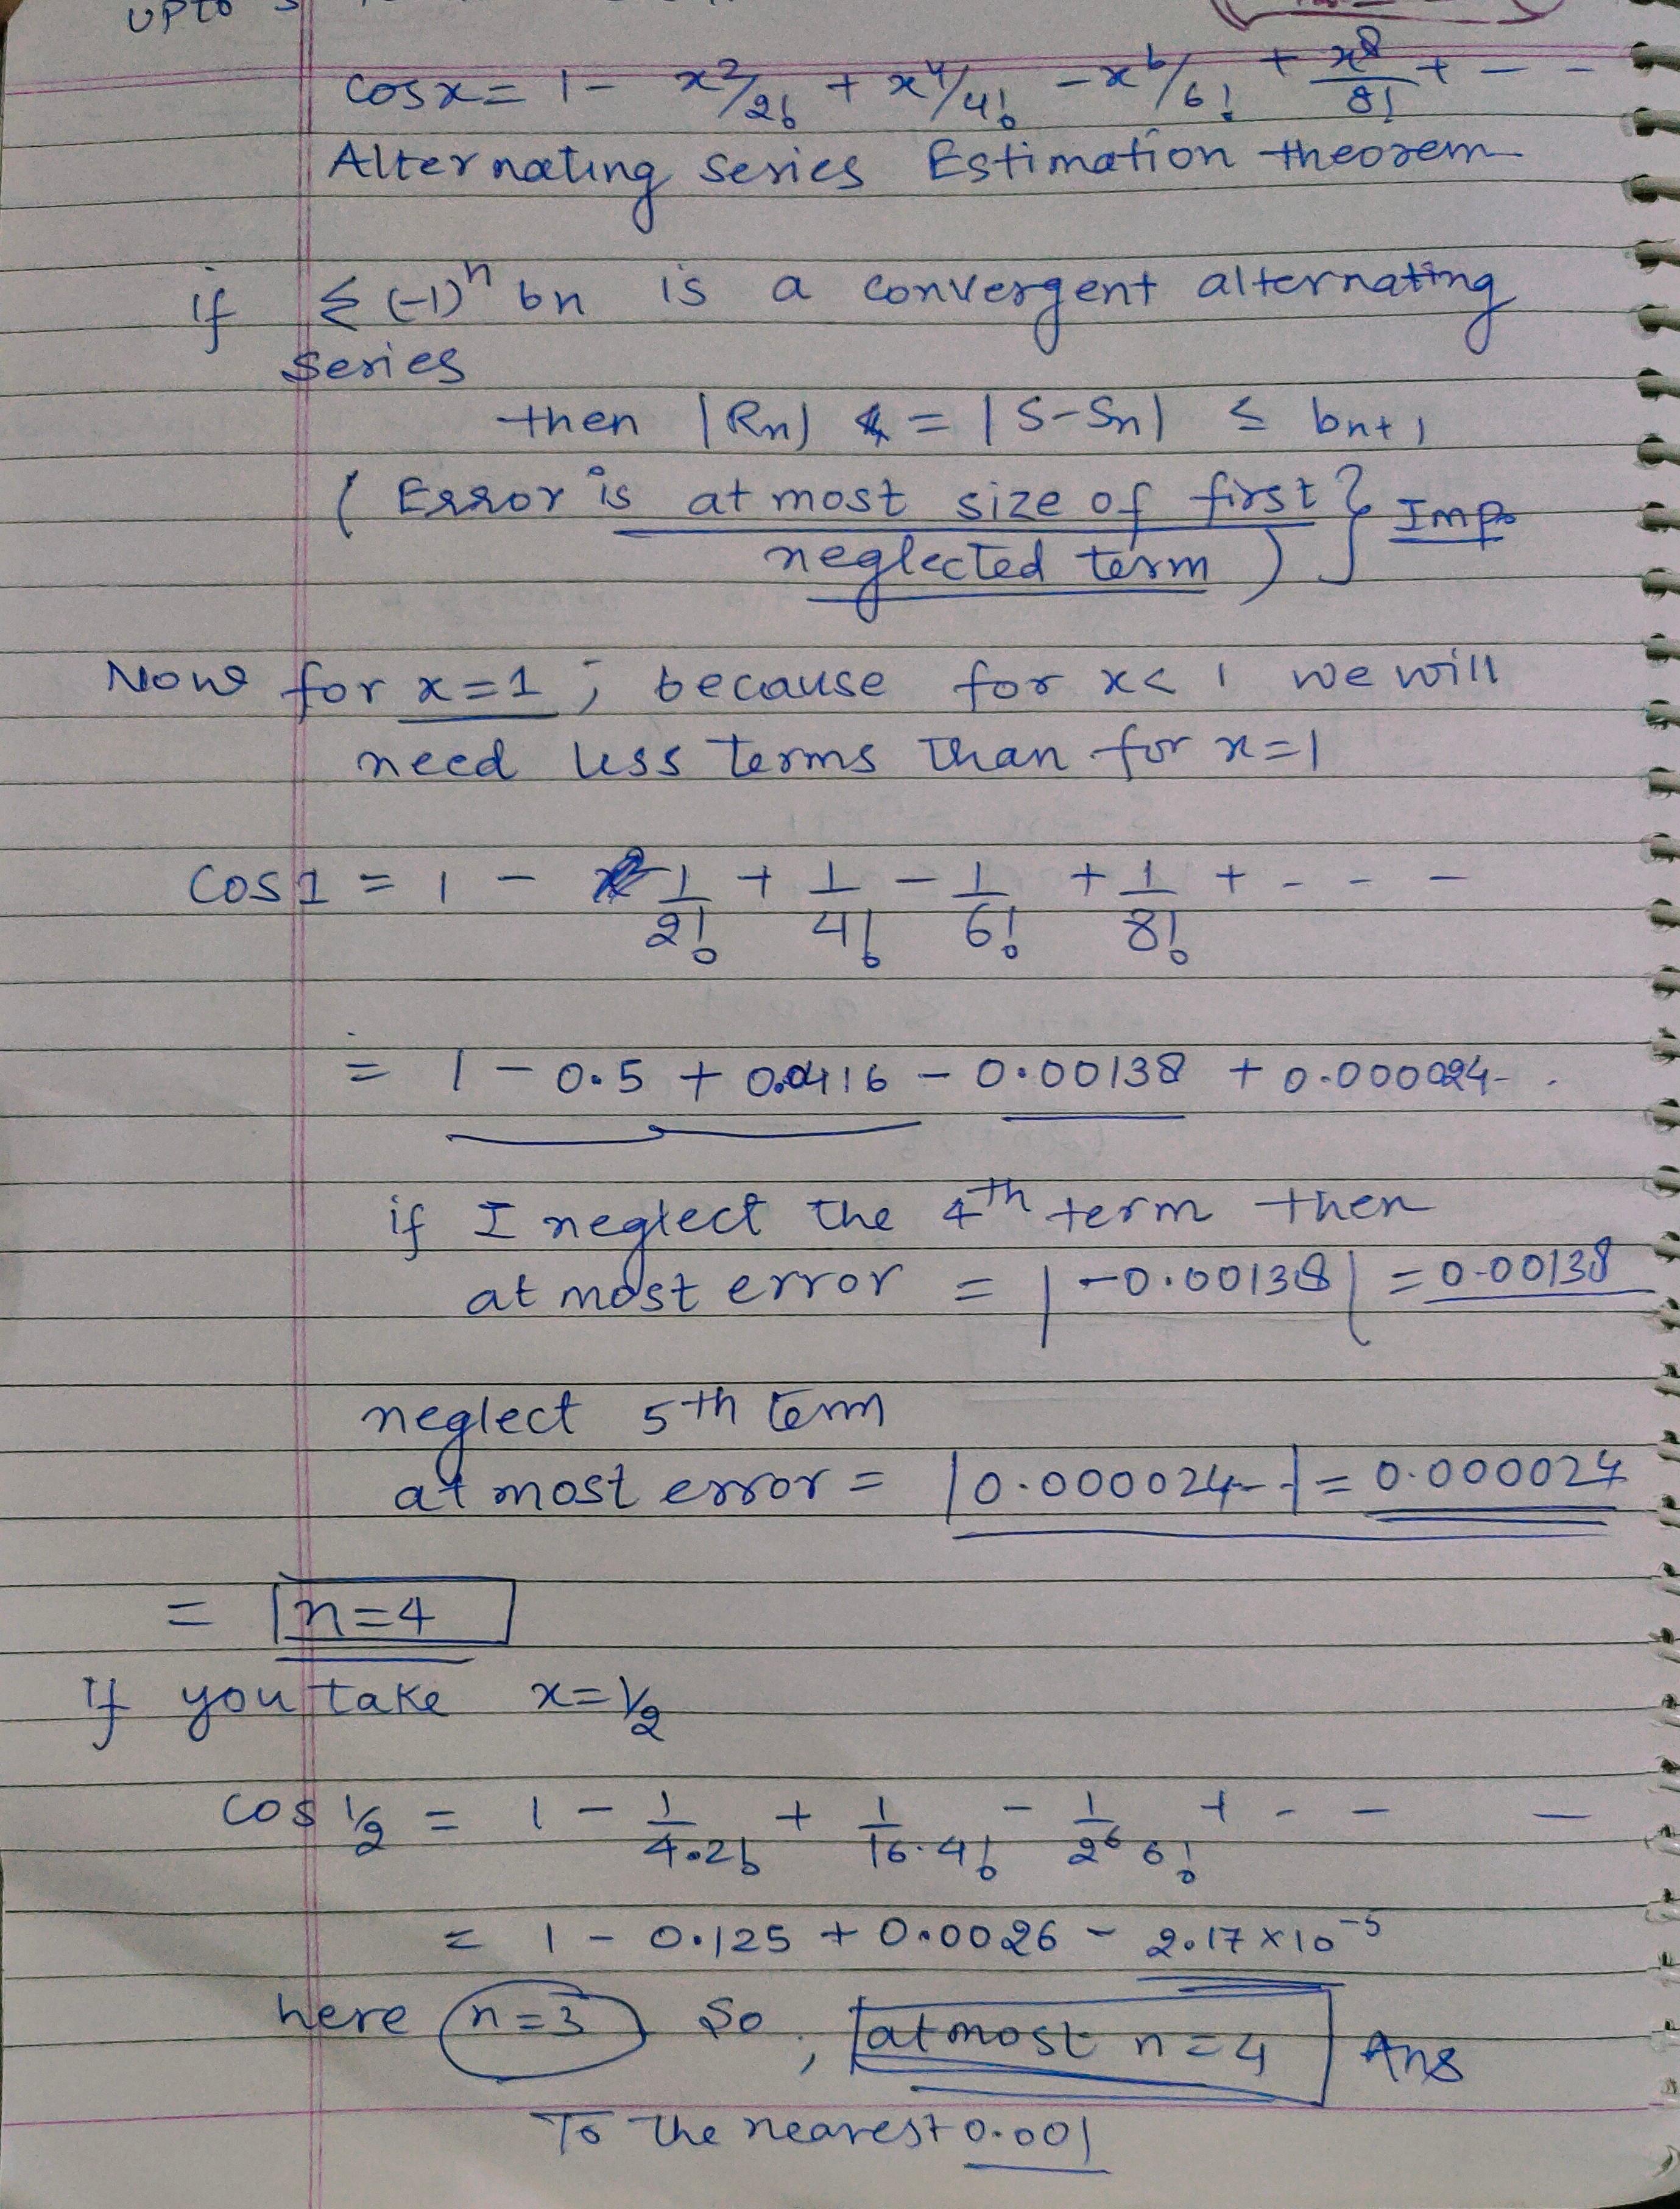 upto
cosx = 1 - x²/2! + x⁴/4! - x⁶/6! + x⁸/8! + - -
Alternating series Estimation theorem
if ≤ (-1)ⁿ bn is a convergent alternating
series
then |Rn| = |S-Sn| ≤ bn+1
( Error is at most size of first } Imp.
neglected term )
Now for x=1 ; because for x< 1 we will
need less terms than for x=1
cos 1 = 1 - 1/2! + 1/4! - 1/6! + 1/8! + - - -
= 1 - 0.5 + 0.0416 - 0.00138 + 0.000024- .
if I neglect the 4th term then
at most error = |-0.00138| = 0.00138
neglect 5th term
at most error = |0.000024--| = 0.000024
= n=4
If you take x=1/2
cos 1/2 = 1 - 1/4.2! + 1/16.4! - 1/2⁶ 6! + - - -
= 1 - 0.125 + 0.0026 - 2.17 x10⁻⁵
here n=3 So, atmost n=4 Ans
To the nearest 0.001